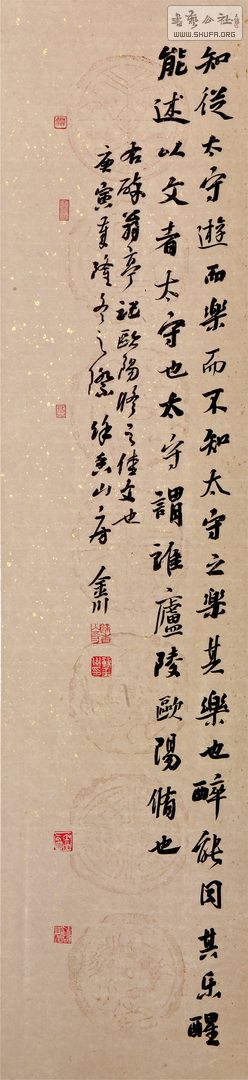 書藝公社
WWW.SHUFA.ORG
知從太守遊而樂而不知太守之樂其樂也醉能同其乐醒
能述以文者太守也太守謂誰廬陵歐陽脩也
右醉翁亭記歐陽脩之佳文也
庚寅年隆冬之際
山房